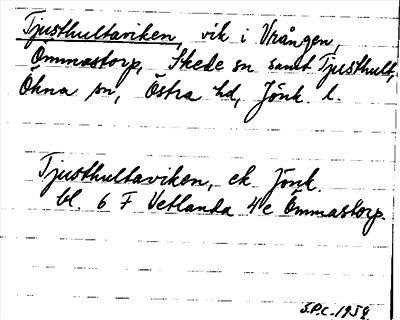 Tjusthultaviken, vik i Vrången,
Ömmastorp, Skede sn samt Tjusthult,
Ökna sn, Östra hd, Jönk. l.
Tjusthultaviken, ek. Jönk.
bl. 6 F Vetlanda 4e Ömmastorp.
S.P.C. 1959